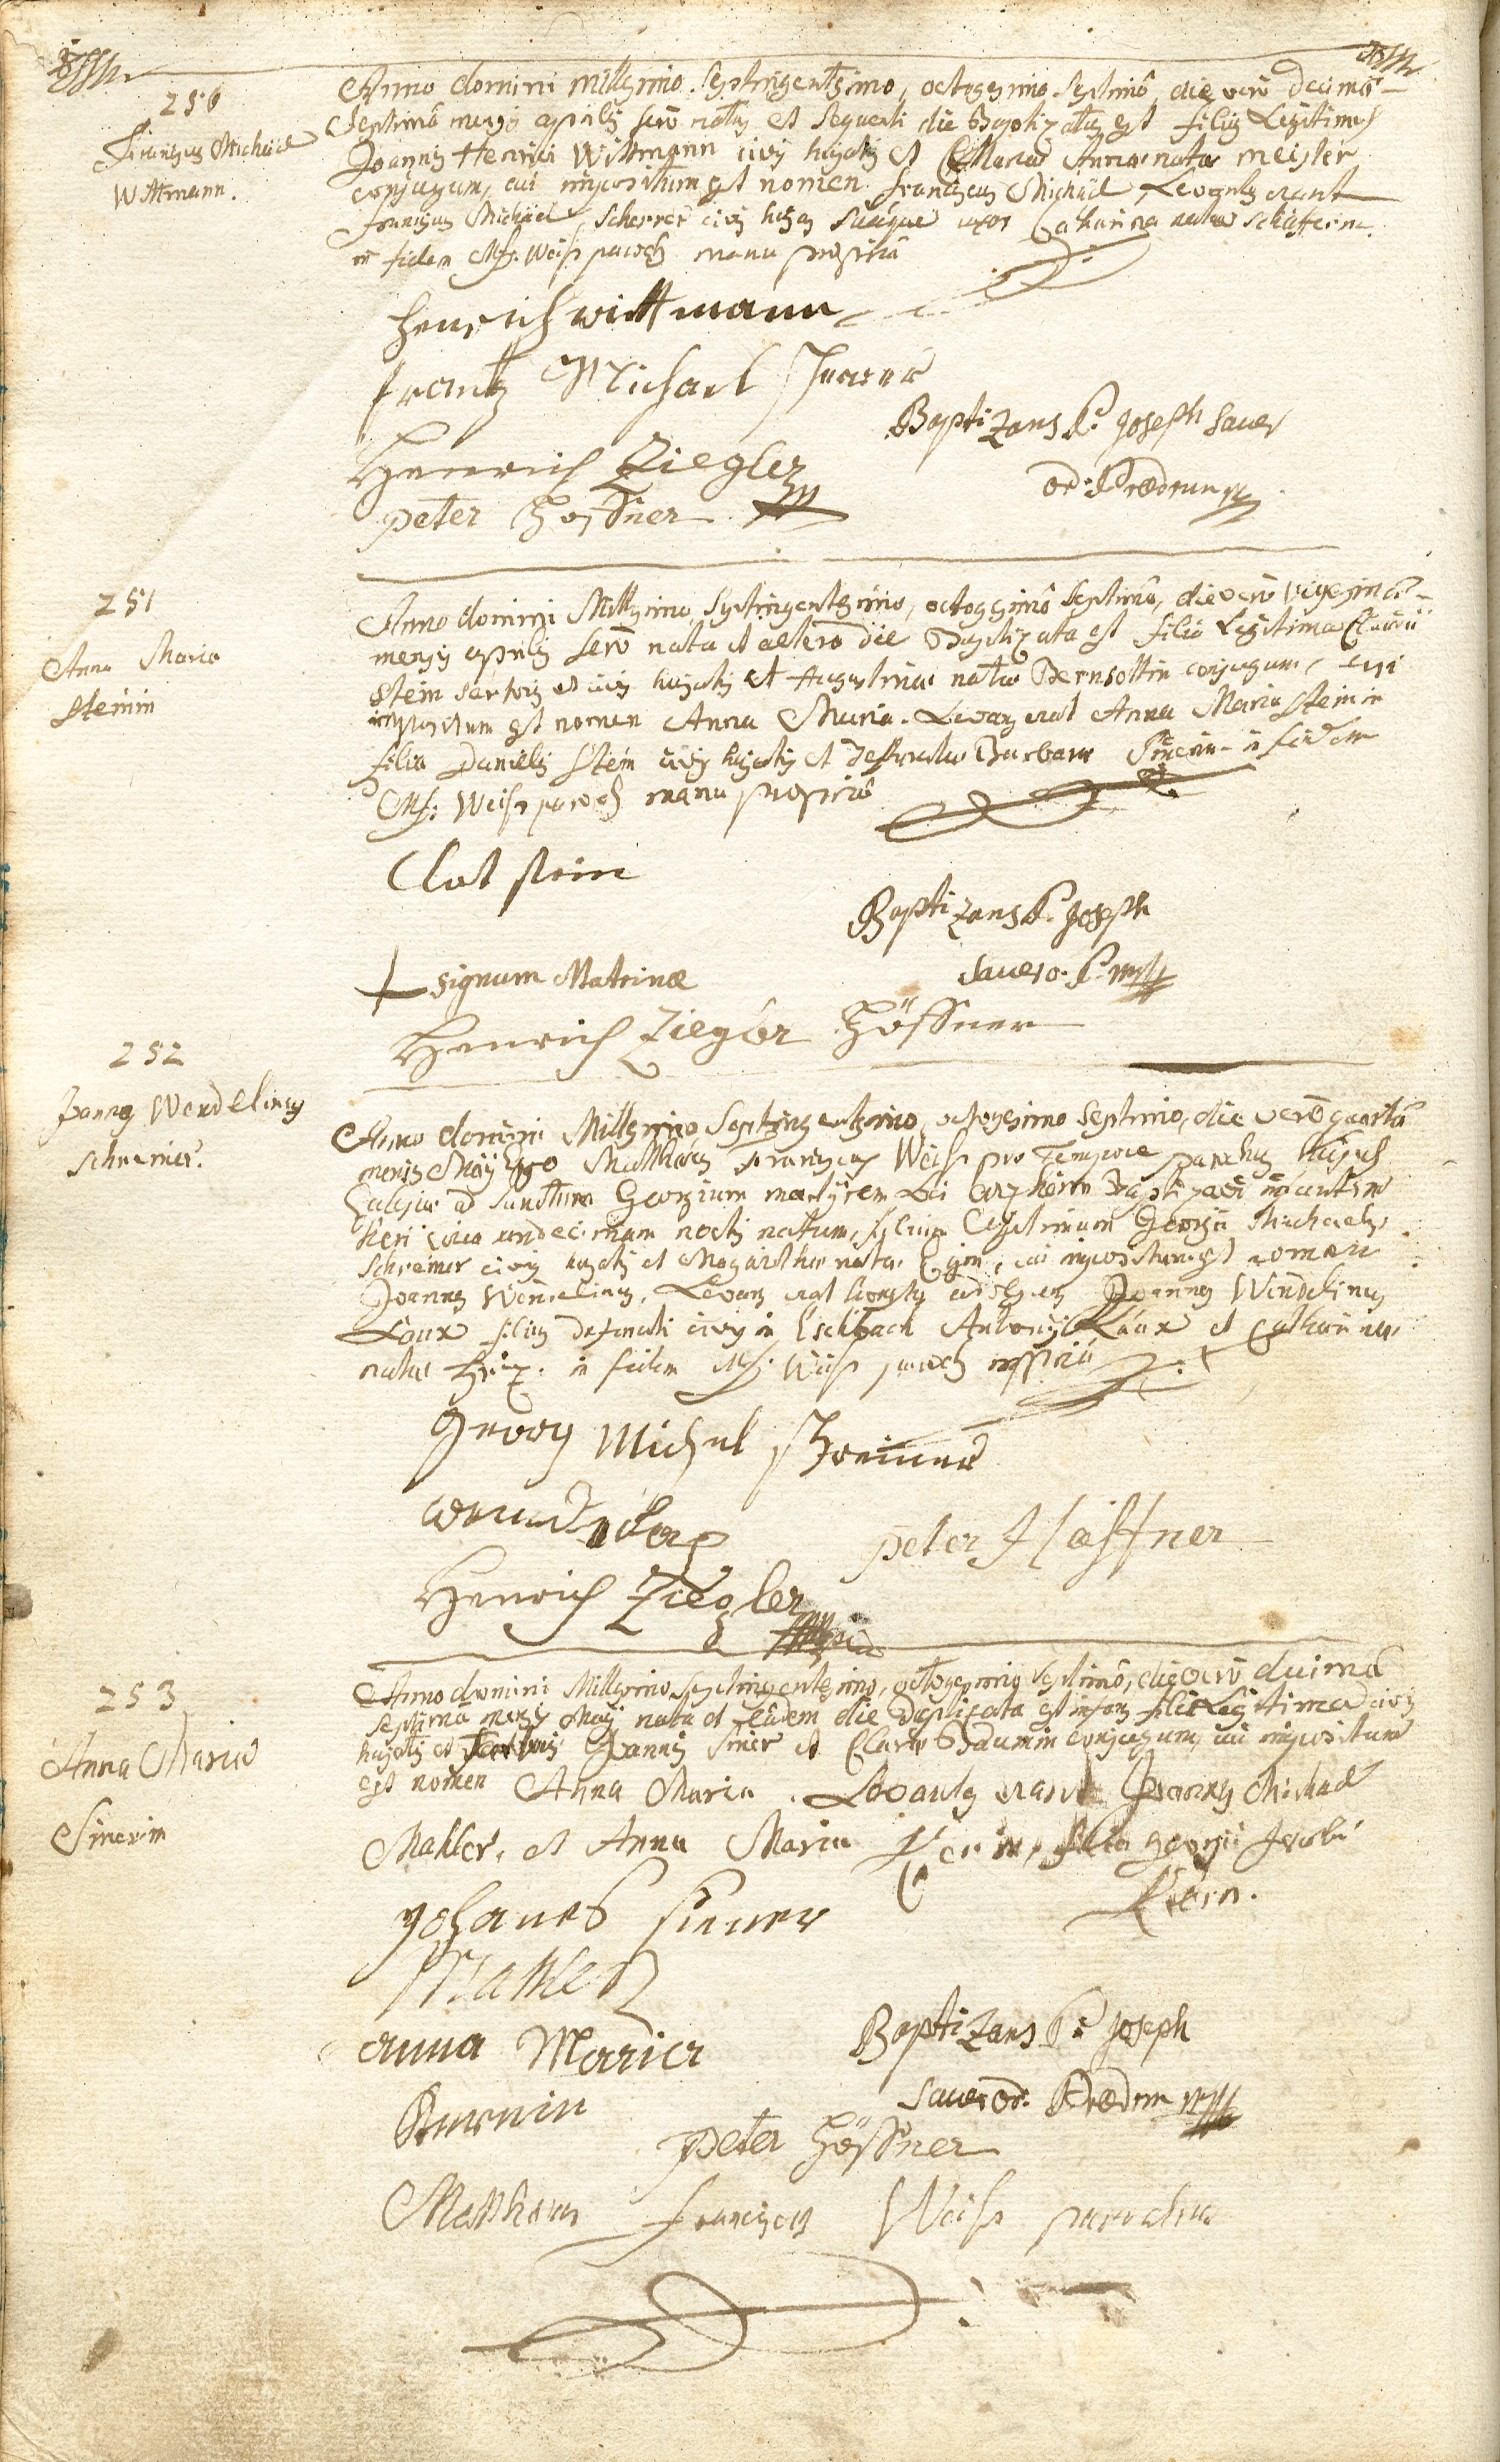 250
Franciscus Michael
Wittmann.
Anno domini millesimo septingentesimo, octogesimo septimo, die vero decima
septima mensis aprilis sero natus et sequenti die Baptizatus est filius Legitimus
Joannis Henrici Wittmann civis hujatis et Mariae Annae natae meister
conjugum, cui impositum est nomen franciscus Michael, Levantes erant
franciscus Michael Scherrer civis hujas suaque uxor Catharina nata schäfferin.
in fidem Mf: Weiss parochus manu propria
Henrich wittmann
frantz Michael
Baptizans P. Joseph Sauer
Henrich Ziegler
ord: Praedm mpp
peter Höffner
251
Anna Maria
Steinin
Anno domini Millesimo septingentesimo, octogesimo septimo, die vero vigesima
mensis aprilis sero nata et altero die Baptizata est filia Legitima Claudii
Stein sartoris et civis hujatis et Augustinae natae Bernsottin conjugum, cui
impositum est nomen Anna Maria. Levans erat Anna Maria Steinin
filia Danielis Stein civis hujatis et defunctae Barbara in fidem
Mf: Weiss paroch manu propria
Clot stein
Baptizans P. Joseph
signum Matrinae
Sauer o. P. mpp
Henrich Ziegler Höffner
252
Joannes Wendelinus
schreiner.
Anno domini Millesimo septingentesimo, octogesimo septimo, die vero quarta
mensis Maij Ego Matthaeus Franciscus Weiss pro Tempore parochus hujus
Ecclesiae ad sanctum Georgium martyrem Baptizavi infantem
heri circa undecimam noctis natum, filium Legitimum Georgii Michaelis
schreiner civis hujatis et Margarethae natae, cui impositum est nomen
Joannes Wendelinus. Levans erat Joannes Wendelinus
Laux filius defuncti civis in Eschbach Antonij Laux et Catharinae
natae. in fidem Mf: Weiss paroch mppria
georg Michel schreiner
peter Haffner
Henrich Ziegler
253
Anna Maria
Sinerin
Anno domini Millesimo septingentesimo, octogesimo septimo, die vero decima
septima mensis Maij nata et eadem die Baptizata est infans filia Legitima civis
hujatis et Joannis Siner et Clarae Baumin conjugum, cui impositum
est nomen Anna Maria. Levantes erant Joannes Michael
Mahler, et Anna Maria, filia georgii Jacobi
Kern.
Johanes sinner
Mahler
anna Maria
Baptizans P: Joseph
Sauer ord: Praedm mpp
peter Höffner
Matthaeus franciscus Weiss parochus